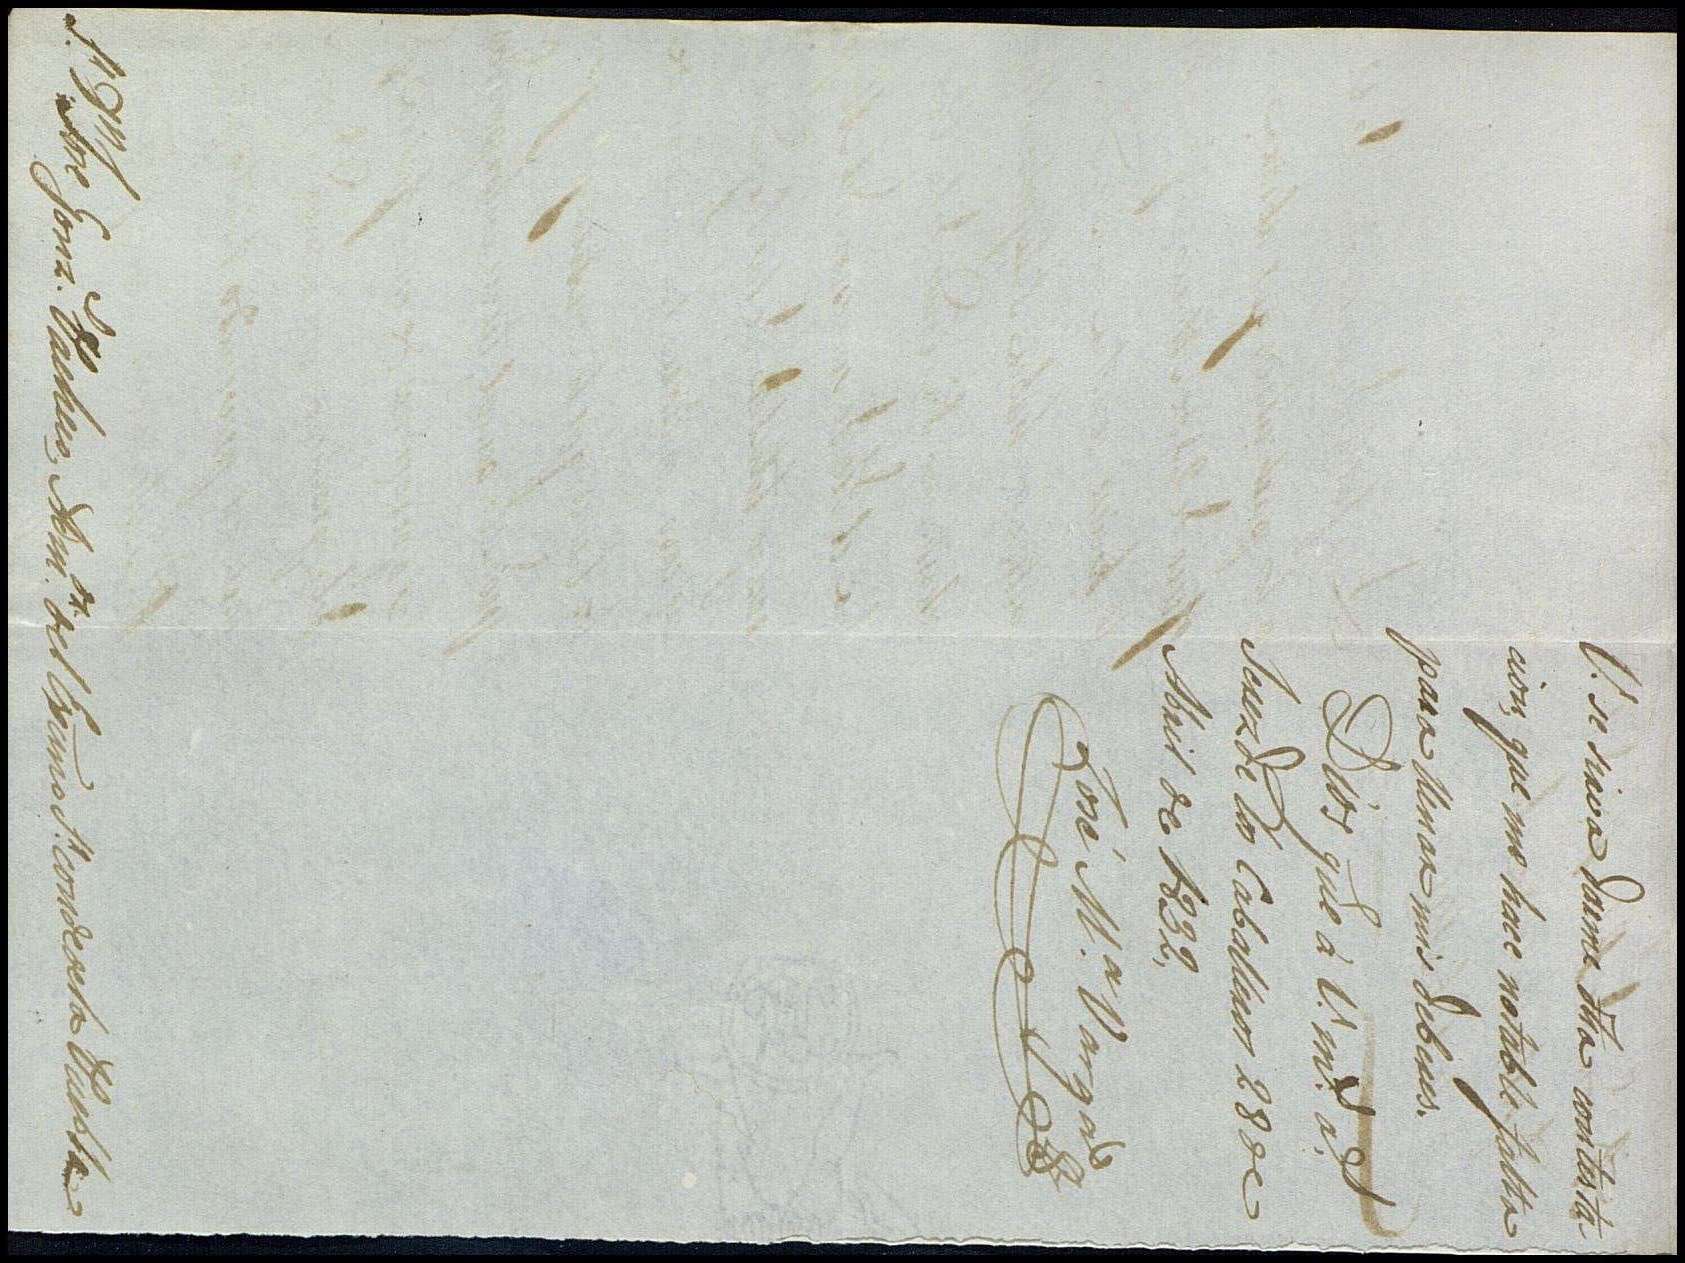 V. se sirva darme dha contesta
cion, que me hace notable falta
para llenar mis deberes.
Dios gue à V. ms. as.
Jerez de los Caballeros 28 de
Abril de 1832,
José M.a Vargas
Sr. Dn
Gonz. del Adm.or del Exmo Sr. Conde de la Puebla